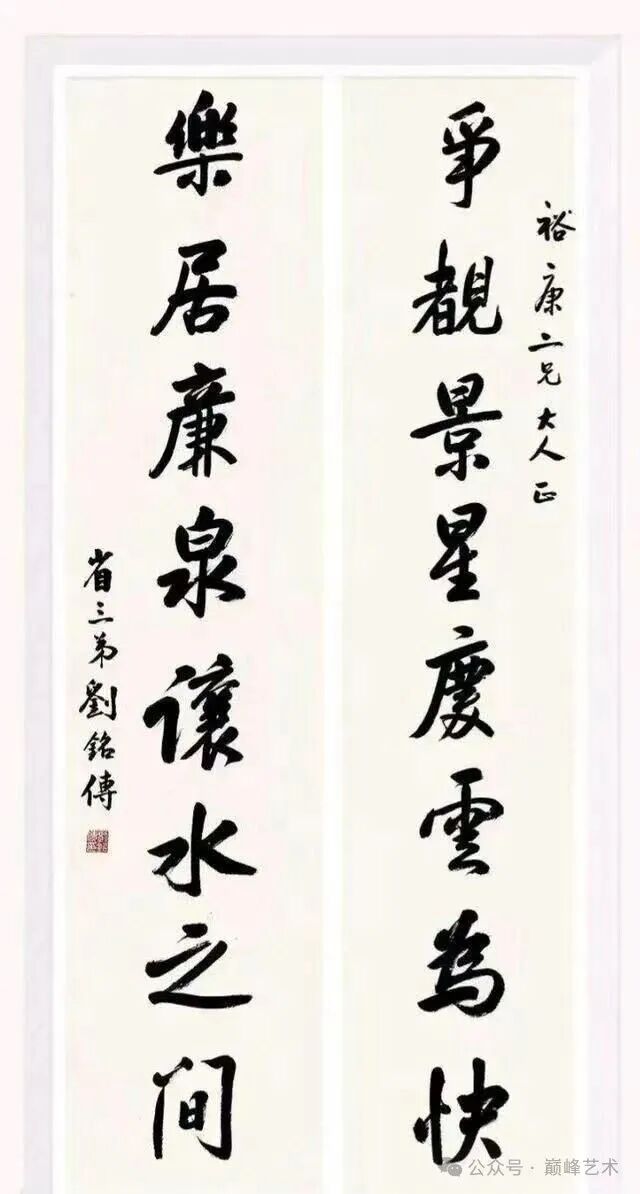 裕康二兄大人正
爭覩景星慶雲為快
樂居廉泉讓水之間
省三弟劉銘傳
公众号·巅峰艺术